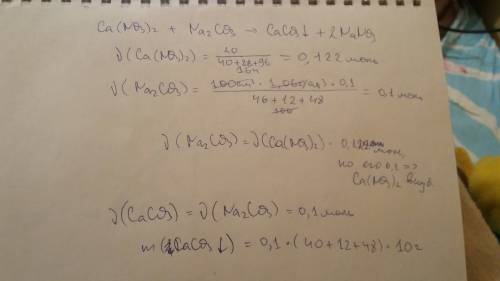 Ca(NO₃)₂ + Na₂CO₃ → CaCO₃↓ + 2NaNO₃
ν(Ca(NO₃)₂) = 20 / (40+28+96) = 0,122 моль
164
ν(Na₂CO₃) = 100см³ · 1,0 · 0,1 / (46+12+48) = 0,1 моль
106
ν(Na₂CO₃) = ν(Ca(NO₃)₂) · 0,122 моль,
но его 0,1 =>
Ca(NO₃)₂ в изб.
ν(CaCO₃) = ν(Na₂CO₃) = 0,1 моль
m(CaCO₃↓) = 0,1 · (40+12+48) · 10г